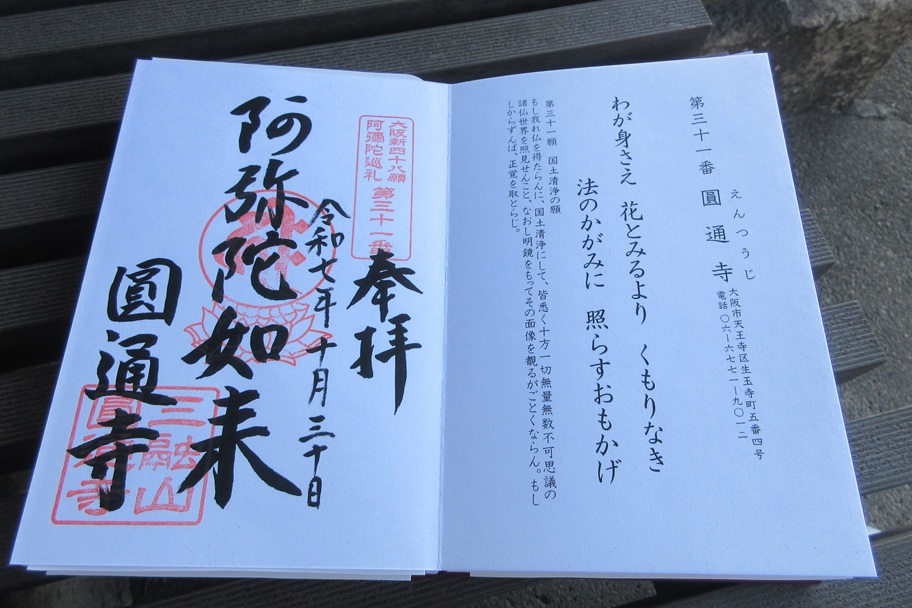 第三十一番 圓通寺
えんつうじ
大阪市天王寺区生玉寺町五番四号
電話 〇六―六七七一―九〇一二
わが身さえ 花とみるより くもりなき
法のかがみに 照らすおもかげ
第三十一願 国土清浄の願
もし我れ仏を得たらんに、国土清浄にして、皆悉く十方一切無量無数不可思議の
諸仏世界を照見せんこと、なおし明鏡をもってその面像を観るがごとくならん。もし
しからずんば、正覚を取らじ。
大阪新四十八願
阿彌陀巡礼
第三十一番
奉拝
令和七年 十月 三十日
阿弥陀如来
圓通寺
三融山
圓通寺